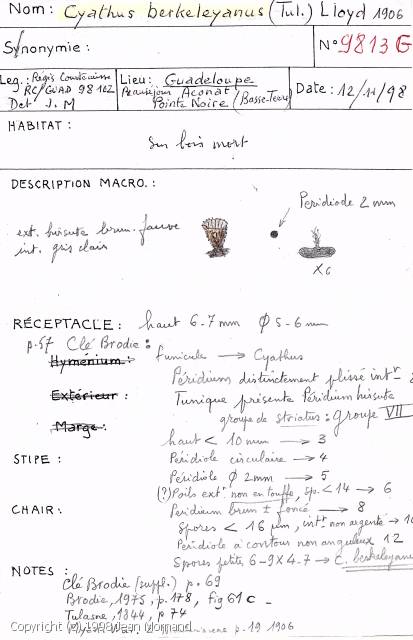 Nom: Cyathus berkeleyanus (Tul.) Lloyd 1906
Synonymie :
N° 9813 G
Leg.: Régis Courtecuisse
RC/GUAD 98 112
Det J. M
Lieu: Guadeloupe
Beauséjour Acomat
Pointe Noire (Basse-Terre)
Date : 12/11/98
HABITAT :
Sur bois mort
DESCRIPTION MACRO. :
Péridiole 2 mm
ext. hirsute brun-fauve
int. gris clair
X6
RÉCEPTACLE : haut 6-7mm Ø 5-6 mm
p.57 Clé Brodie :
Hyménium : funicule → Cyathus
Péridium distinctement plissé intr
Extérieur : Tunique présente Péridium hirsute
groupe de striatus : groupe VII
Marge :
haut < 10 mm → 3
STIPE :
Péridiole circulaire → 4
Péridiole Ø 2mm → 5
(?) Poils extr non en touffe, sp. < 14 → 6
CHAIR :
Peridium brun ± foncé → 8
Spores < 16 µm, intr non argenté → 10
Péridiole à contour non anguleux 12
Spores petites 6-9 X 4-7 → C. berkeleyanus
NOTES :
Clé Brodie (suppl.) p. 69
Brodie, 1975, p. 178, Fig 61 c -
Tulasne, 1844, p 74
p. 19 1906
Copyright (c) 1998 Jean Mornand